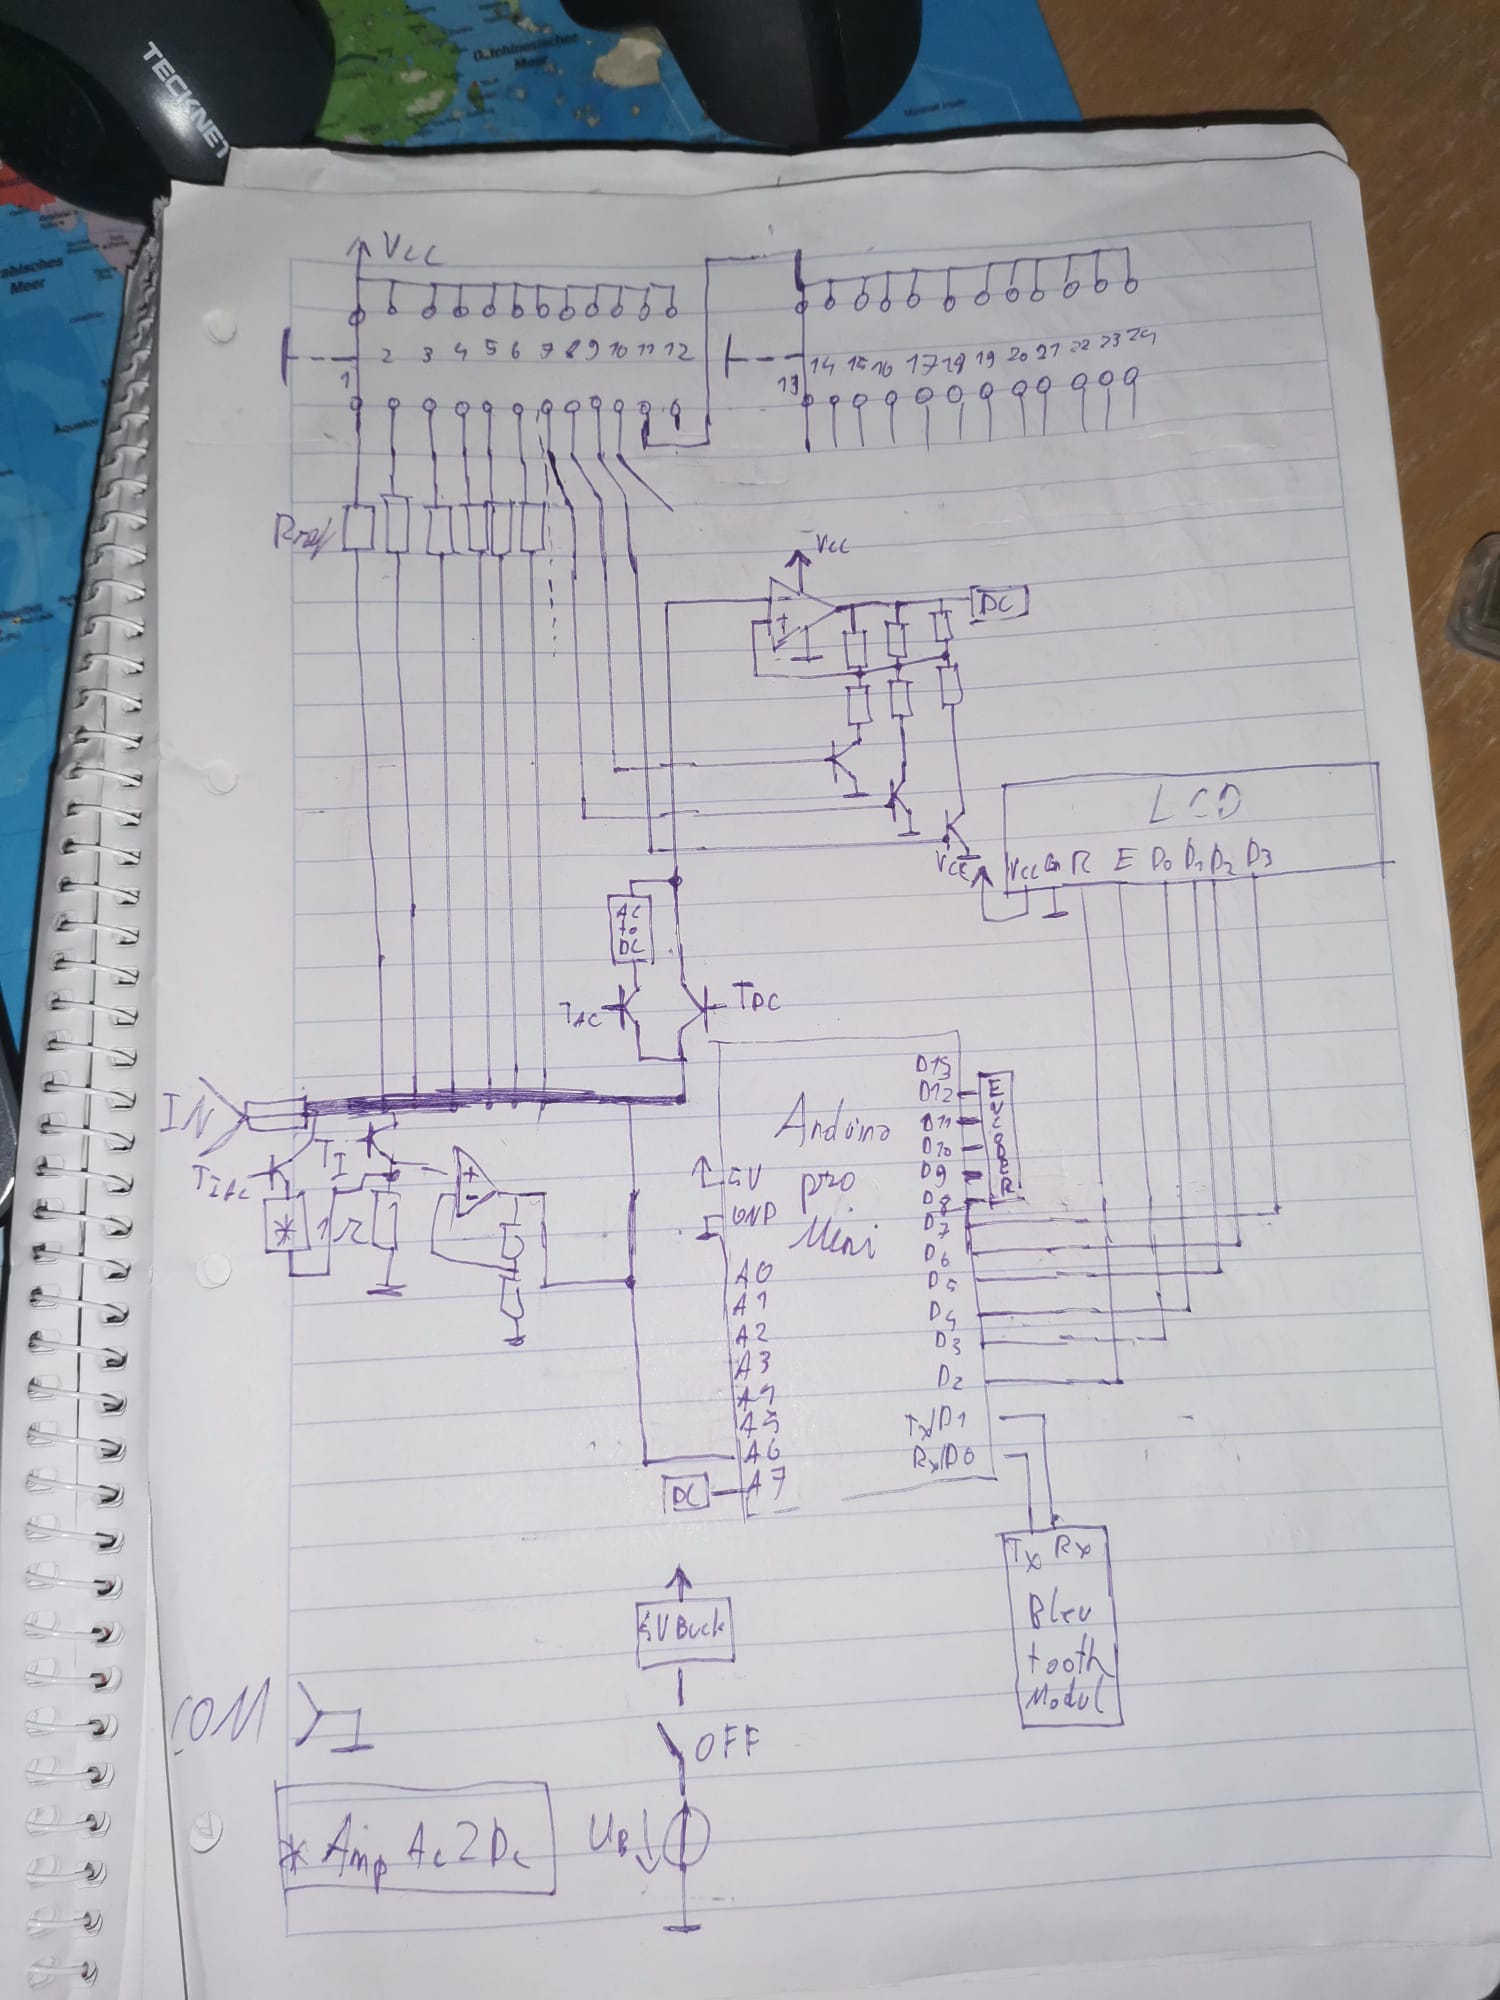 TECKNET
Südchinesisches
Meer
Marshall Inseln
abisches
Meer
Vcc
2 3 4 5 6 7 8 9 10 11 12
1
14 15 16 17 18 19 20 21 22 23 24
13
Rref
Vcc
-
+
DC
LCD
Vcc
Vcc Gn R E D0 D1 D2 D3
AC
To
DC
TAC
TDC
IN
TIAC
TI
* 1Ω
+
-
Arduino
pro
Mini
5V
GND
A0
A1
A2
A3
A4
A5
A6
A7
DC
D13
D12
D11
D10
D9
D8
D7
D6
D5
D4
D3
D2
Tx/D1
Rx/D0
Tx Rx
Bleu
tooth
Modul
5V Buck
OFF
UB
COM
* Amp Ac2Dc